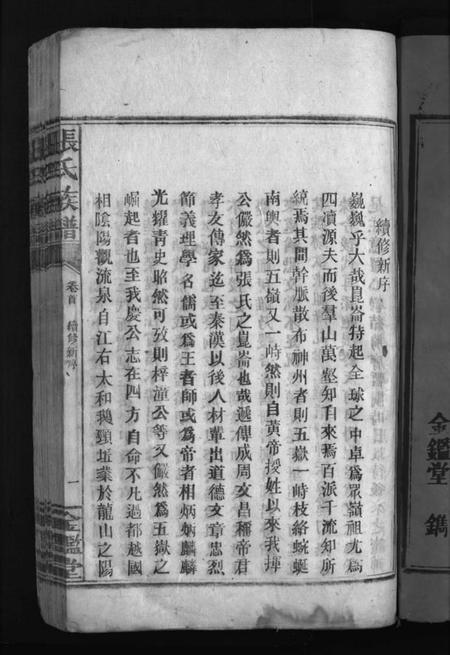 續修新序
巍巍乎大哉崑崙特起全球之中卓為眾嶽祖尤為
四瀆源夫而後羣山萬壑知自來焉百派千流知所
統焉其間幹脈散布神州者則五嶽一峙枝絡蜿蜒
南輿者則五嶺又一峙然則自黃帝授姓以來我
公儼然為張氏之崑崙也哉遞傳成周文昌稱帝君
孝友傳家迄至秦漢以後人材輩出道德文章忠烈
節義理學名儒或為王者師或為帝者相炳炳麟麟
光耀青史昭然可攷則梓潼公等又儼然為五嶽之
崛起者也至我慶公志在四方自命不凡過都越國
相陰陽觀流泉自江右太和鵝頸坵業於龍山之陽
張氏族譜
卷首
續修新序
一
金鑑堂
金鑑堂
鐫